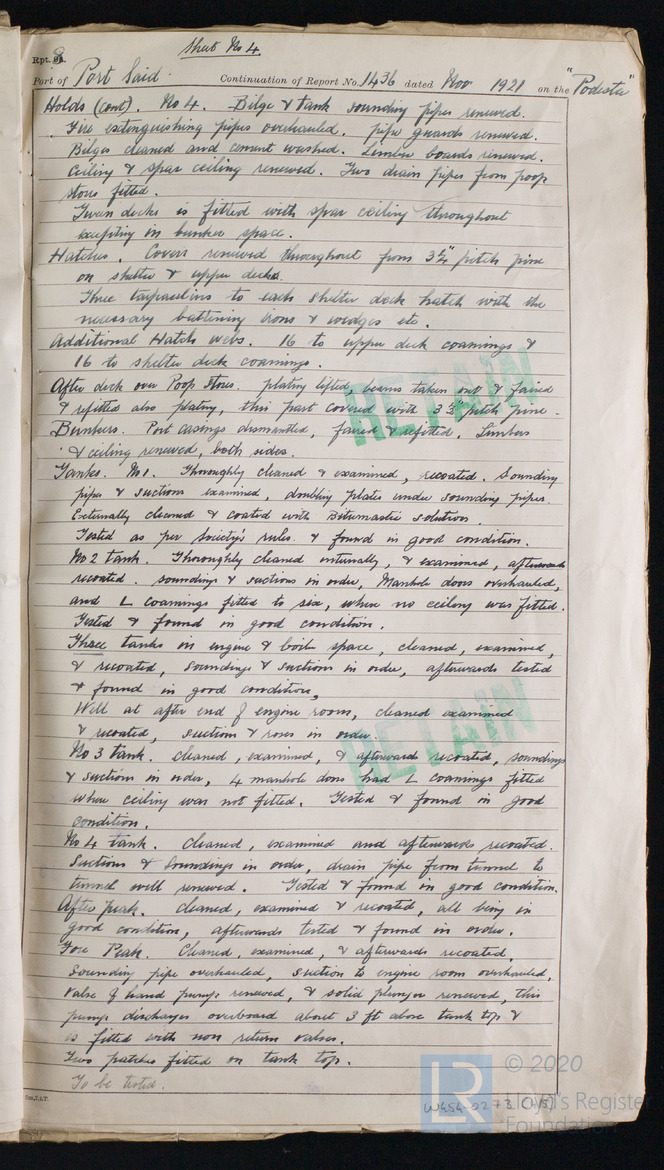 Sheet No 4.
Rpt. 8
Port of Port Said. Continuation of Report No. 1436 dated Nov 1921 on the "Podesta"
Holds (cont). No 4. Bilge & tank sounding pipes renewed.
Fire extinguishing pipes overhauled. pipe guards renewed.
Bilges cleaned and cement washed. Limber boards renewed.
Ceiling & spar ceiling renewed. Two drain pipes from poop
stores fitted.
Tween decks is fitted with spar ceiling throughout
excepting in bunker space.
Hatches. Covers renewed throughout from 3¼" pitch pine
on shelter & upper decks.
Three tarpaulins to each shelter deck hatch with the
necessary battening irons & wedges etc.
Additional Hatch webs. 16 to upper deck coamings &
16 to shelter deck coamings.
After deck over Poop stores. plating lifted, beams taken out & faired
& refitted also plating, this part covered with 3 pitch pine.
Bunkers. Port casings dismantled, faired & refitted, Limbers
& ceiling renewed, both sides.
Tanks. No 1. Thoroughly cleaned & examined, recoated. Sounding
pipes & suctions examined, doubling plates under sounding pipes.
Externally cleaned & coated with Bitumastic solution.
Tested as per Society's rules & found in good condition.
No 2 tank. Thoroughly cleaned internally, & examined, afterwards
recoated. soundings & suctions in order, Manhole doors overhauled,
and L coamings fitted to six, where no ceiling was fitted.
Tested & found in good condition.
Three tanks in engine & boiler space, cleaned, examined,
& recoated, soundings & suctions in order, afterwards tested
& found in good condition,
Well at after end of engine room, cleaned examined
& recoated, suctions & roses in order.
No 3 tank. cleaned, examined, & afterwards recoated, soundings
& suctions in order, 4 manhole doors had L coamings fitted
where ceiling was not fitted. Tested & found in good
condition.
No 4 tank. Cleaned, examined and afterwards recoated.
Suctions & Soundings in order, drain pipe from tunnel to
tunnel well renewed. Tested & found in good condition.
After peak. Cleaned, examined & recoated, all being in
good condition, afterwards tested & found in order.
Fore Peak. Cleaned, examined, & afterwards recoated,
Sounding pipe overhauled, suction to engine room overhauled,
Valve of hand pump renewed, & solid plunger renewed, this
pump discharges overboard about 3 ft above tank top &
is fitted with non return valves.
Two patches fitted on tank top.
To be tested.
RETAIN
RETAIN
© 2020
Lloyd's Register
Foundation
LR